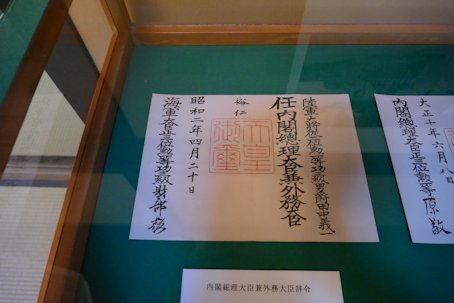 陸軍大將從二位勲一等功三級男爵田中義一
任内閣總理大臣兼外務大臣
裕仁
天皇
御璽
昭和二年四月二十日
海軍大臣正三位勲一等功三級財部彪
大正十年六月八日
内閣總理大臣正三位勲一等原敬
内閣総理大臣兼外務大臣辞令